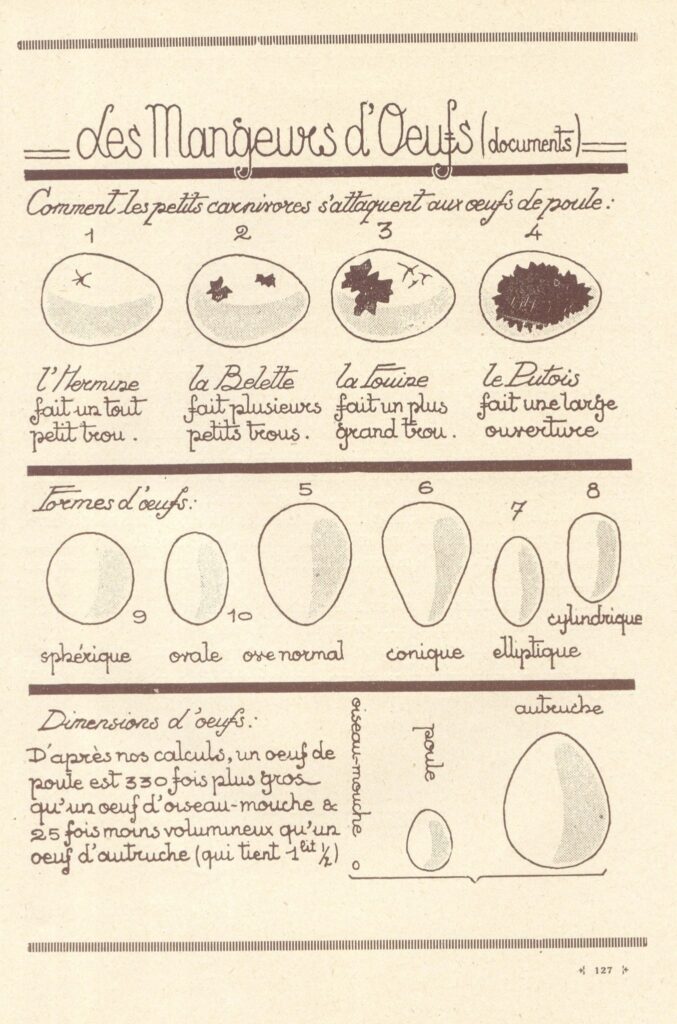 Les Mangeurs d'Oeufs (documents)
Comment les petits carnivores s'attaquent aux œufs de poule :
1
l'Hermine
fait un tout
petit trou .
2
la Belette
fait plusieurs
petits trous .
3
la Fouine
fait un plus
grand trou .
4
le Putois
fait une large
ouverture
Formes d'œufs :
9
sphérique
10
ovale
5
ove normal
6
conique
7
elliptique
8
cylindrique
Dimensions d'œufs :
D'après nos calculs, un oeuf de
poule est 330 fois plus gros
qu'un oeuf d'oiseau-mouche &
25 fois moins volumineux qu'un
oeuf d'autruche (qui tient 1 lit ½)
oiseau-mouche
poule
autruche
127